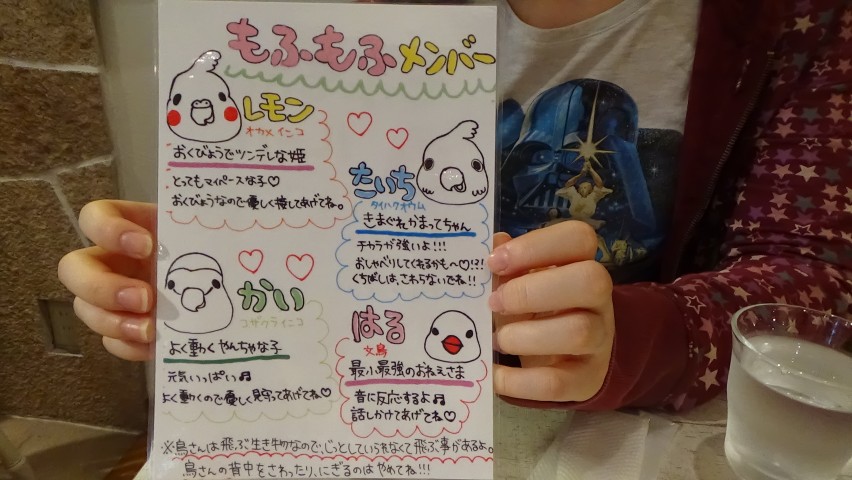 もふもふメンバー
レモン
オカメインコ
おくびょうでツンデレな姫
とってもマイペースな子♡
おくびょうなので優しく接してあげてね。
たいち
タイハクオウム
きまぐれかまってちゃん
チカラが強いよ!!!
おしゃべりしてくれるかも〜♡!?!
くちばしは、さわらないでね!!
かい
コザクラインコ
よく動くやんちゃな子
元気いっぱい♫
よく動くので優しく見守ってあげてね♡
はる
文鳥
最小最強のおねえさま
音に反応するよ♫
話しかけてあげてね♡
※鳥さんは飛ぶ生き物なので、じっとしていられなくて飛ぶ事があるよ。
鳥さんの背中をさわったり、にぎるのはやめてね!!!